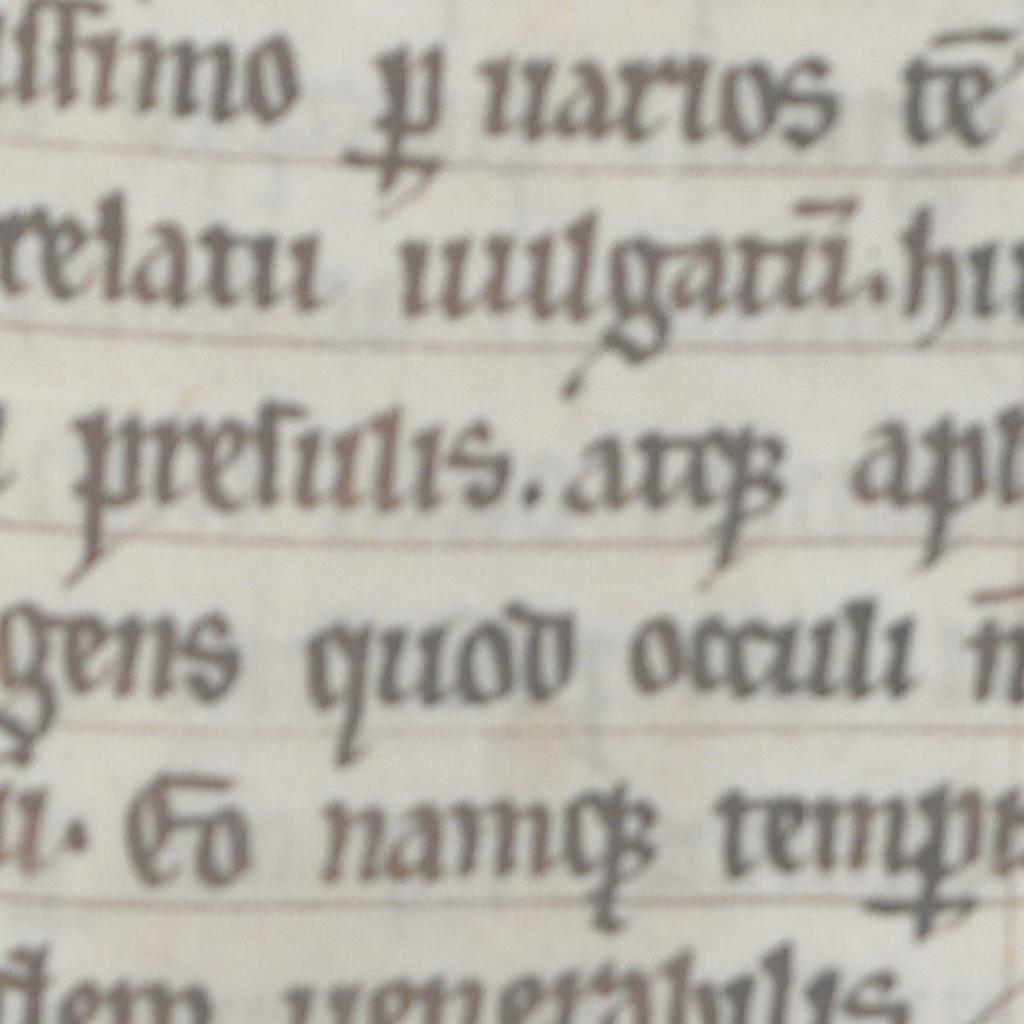 ſſimo ꝑ uarios tē
relatu uulgatū. hu
preſulis. atqꝫ apl
gens quod occuli n̄
u. Eo namqꝫ temꝑe
dem uenerabilis